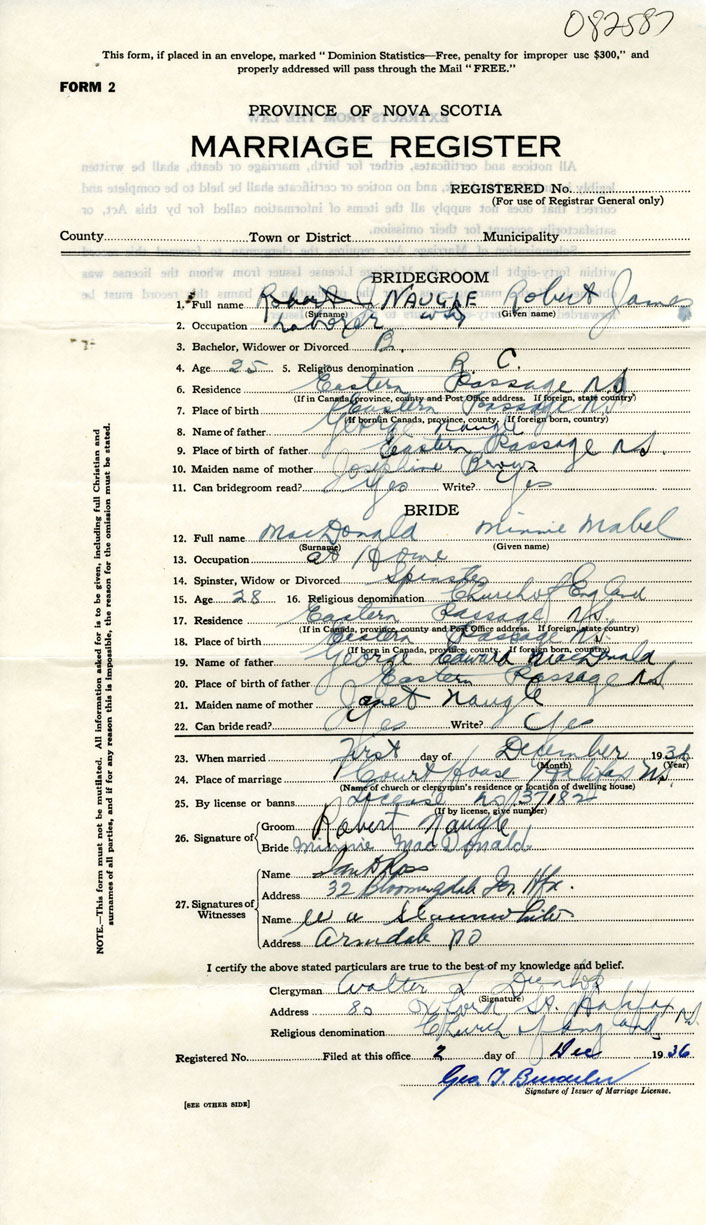 082587
This form, if placed in an envelope, marked "Dominion Statistics—Free, penalty for improper use $300," and
properly addressed will pass through the Mail "FREE."
FORM 2
PROVINCE OF NOVA SCOTIA
MARRIAGE REGISTER
REGISTERED No.
(For use of Registrar General only)
County Town or District Municipality
BRIDEGROOM
1. Full name NAUGLE Robert James
(Surname) (Given name)
2. Occupation Laborer
3. Bachelor, Widower or Divorced B.
4. Age 25 5. Religious denomination R. C.
6. Residence Eastern Passage N.S.
(If in Canada, province, county and Post Office address. If foreign, state country)
7. Place of birth Eastern Passage N.S.
(If born in Canada, province, county. If foreign born, country)
8. Name of father George Naugle
9. Place of birth of father Eastern Passage N.S.
10. Maiden name of mother Josephine Brown
11. Can bridegroom read? Yes Write? Yes
BRIDE
12. Full name MacDonald Minnie Mabel
(Surname) (Given name)
13. Occupation at Home
14. Spinster, Widow or Divorced Spinster
15. Age 28 16. Religious denomination Church of England
17. Residence Eastern Passage N.S.
(If in Canada, province, county and Post Office address. If foreign, state country)
18. Place of birth Eastern Passage N.S.
(If born in Canada, province, county. If foreign born, country)
19. Name of father George Edward MacDonald
20. Place of birth of father Eastern Passage N.S.
21. Maiden name of mother Janet Naugle
22. Can bride read? Yes Write? Yes
23. When married First day of December 1936
(Month) (Year)
24. Place of marriage Court House Halifax N.S.
(Name of church or clergyman's residence or location of dwelling house)
25. By license or banns License No 37182
(If by license, give number)
26. Signature of Groom Robert Naugle
Bride Minnie MacDonald
27. Signatures of Witnesses
Name Ross
Address 32 Bloomingdale Ter. Hfx.
Name W A
Address Armdale
I certify the above stated particulars are true to the best of my knowledge and belief.
Clergyman Walter Dunlop
(Signature)
Address 80 St. Halifax N.S.
Religious denomination Church of England
Registered No. Filed at this office 2 day of Dec 1936
Geo. T.
Signature of Issuer of Marriage License.
[SEE OTHER SIDE]
NOTE.—This form must not be mutilated. All information asked for is to be given, including full Christian and
surnames of all parties, and if for any reason this is impossible, the reason for the omission must be stated.